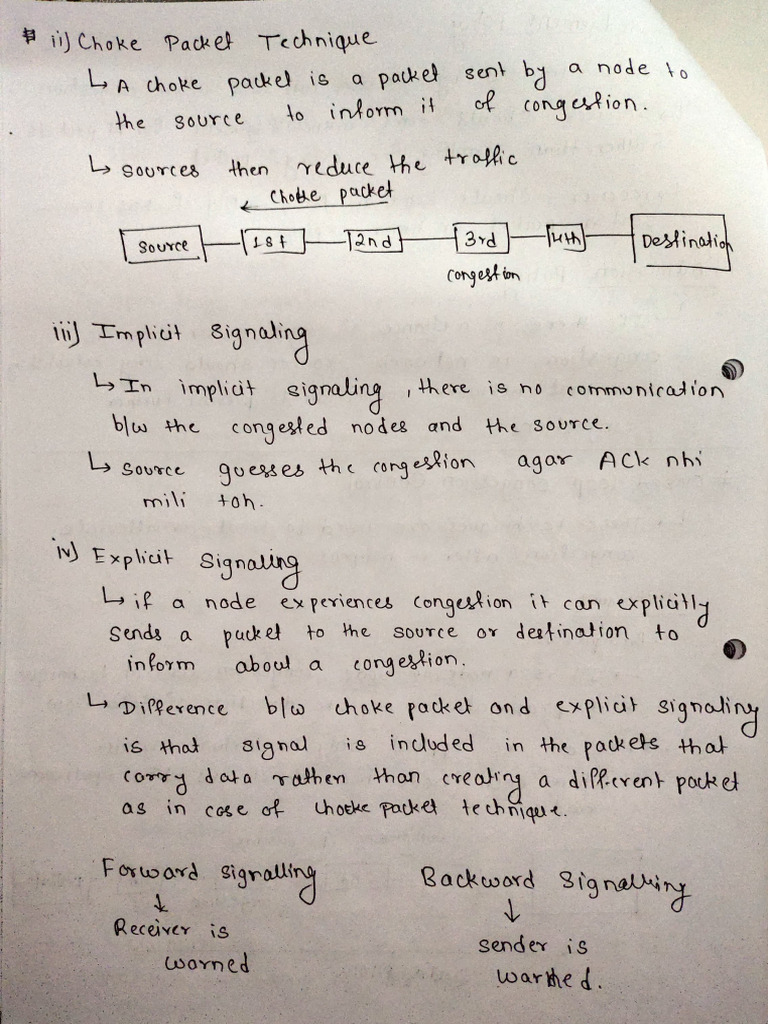 ii) Choke Packet Technique
↳ A choke packet is a packet sent by a node to
the source to inform it of congestion.
↳ sources then reduce the traffic
choke packet
source 1st 2nd 3rd 4th Destination
congestion
iii) Implicit Signaling
↳ In implicit signaling, there is no communication
b/w the congested nodes and the source.
↳ source guesses the congestion agar ACK nhi
mili toh.
iv) Explicit Signaling
↳ if a node experiences congestion it can explicitly
sends a packet to the source or destination to
inform about a congestion.
↳ Difference b/w choke packet and explicit signaling
is that signal is included in the packets that
carry data rather than creating a different packet
as in case of choke packet technique.
Forward signalling Backward Signalling
↓ ↓
Receiver is sender is
warned warned.